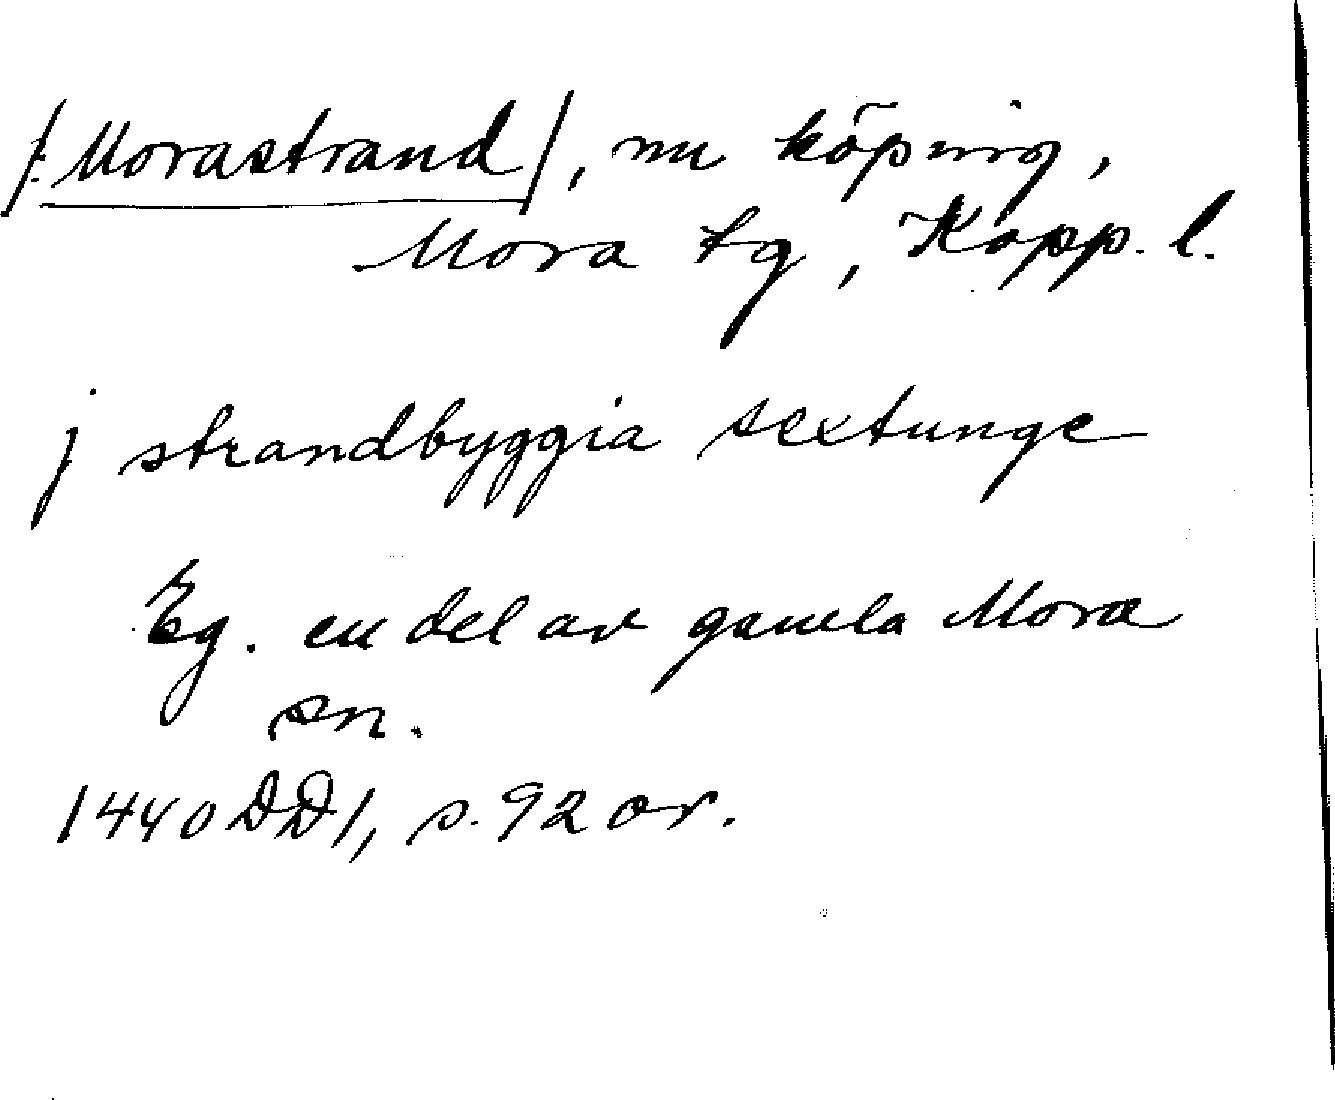 /: Morastrand/, nu köping,
Mora tg, Kopp. l.
j strandbyggia sextunge
Eg. en del av gamla Mora
sn.
1440 DD 1, s. 92 or.